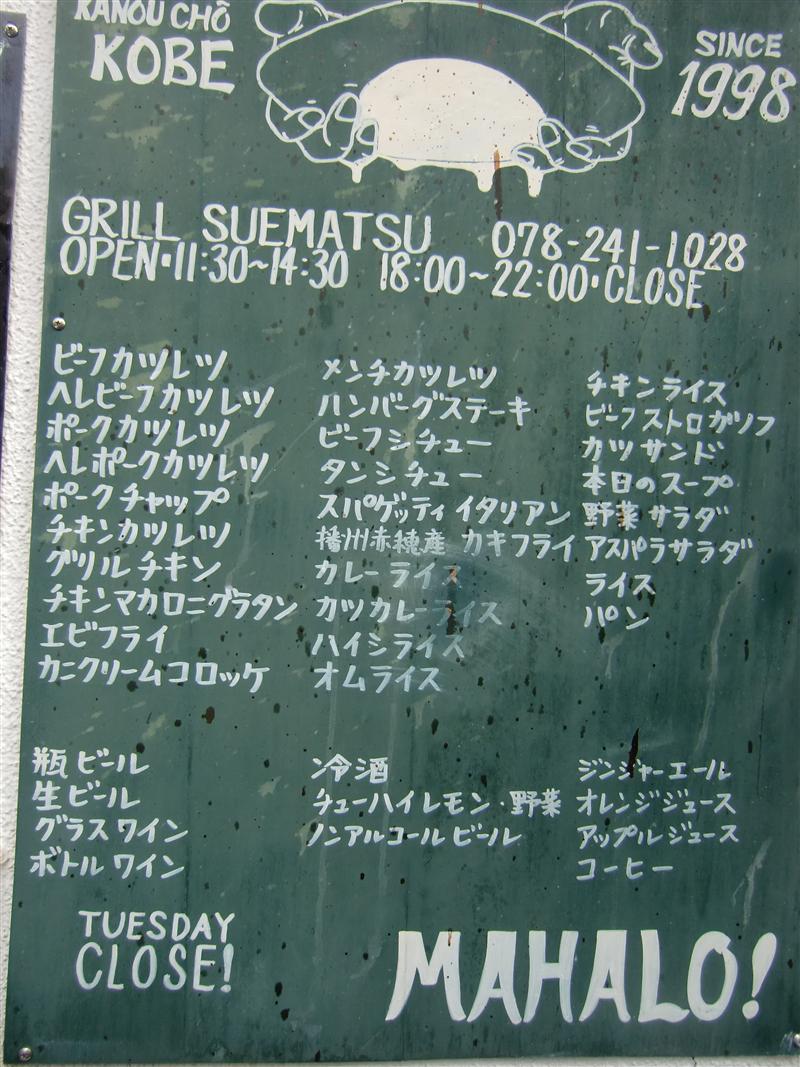 KANOU CHŌ
KOBE
SINCE
1998
GRILL SUEMATSU 078-241-1028
OPEN・11:30~14:30 18:00~22:00・CLOSE
ビーフカツレツ
ヘレビーフカツレツ
ポークカツレツ
ヘレポークカツレツ
ポークチャップ
チキンカツレツ
グリルチキン
チキンマカロニグラタン
エビフライ
カニクリームコロッケ
メンチカツレツ
ハンバーグステーキ
ビーフシチュー
タンシチュー
スパゲッティイタリアン
播州赤穂産 カキフライ
カレーライス
カツカレーライス
ハイシライス
オムライス
チキンライス
ビーフストロガノフ
カツサンド
本日のスープ
野菜サラダ
アスパラサラダ
ライス
パン
瓶ビール
生ビール
グラスワイン
ボトルワイン
冷酒
チューハイレモン・野菜
ノンアルコールビール
ジンジャーエール
オレンジジュース
アップルジュース
コーヒー
TUESDAY
CLOSE!
MAHALO!